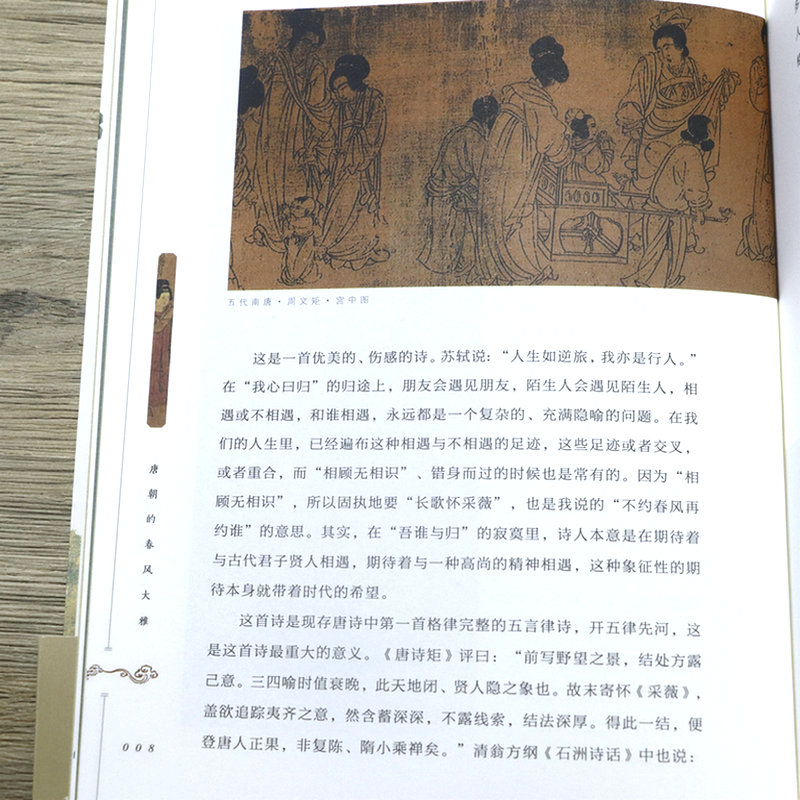 五代南唐·周文矩·宫中图
这是一首优美的、伤感的诗。苏轼说：“人生如逆旅，我亦是行人。”
在“我心曰归”的归途上，朋友会遇见朋友，陌生人会遇见陌生人，相
遇或不相遇，和谁相遇，永远都是一个复杂的、充满隐喻的问题。在我
们的人生里，已经遍布这种相遇与不相遇的足迹，这些足迹或者交叉，
或者重合，而“相顾无相识”、错身而过的时候也是常有的。因为“相
顾无相识”，所以固执地要“长歌怀采薇”，也是我说的“不约春风再
约谁”的意思。其实，在“吾谁与归”的寂寞里，诗人本意是在期待着
与古代君子贤人相遇，期待着与一种高尚的精神相遇，这种象征性的期
待本身就带着时代的希望。
这首诗是现存唐诗中第一首格律完整的五言律诗，开五律先河，这
是这首诗最重大的意义。《唐诗矩》评曰：“前写野望之景，结处方露
己意。三四喻时值衰晚，此天地闭、贤人隐之象也。故末寄怀《采薇》，
盖欲追踪夷齐之意，然含蓄深深，不露线索，结法深厚。得此一结，便
登唐人正果，非复陈、隋小乘禅矣。”清翁方纲《石洲诗话》中也说：
唐朝的春风大雅
008